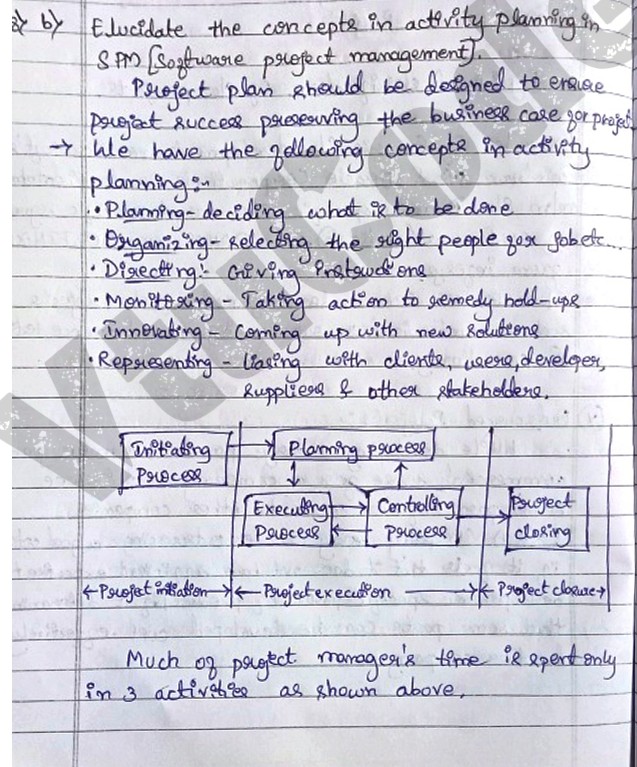 b) Elucidate the concepts in activity planning in
SPM [Software project management].
Project plan should be designed to ensure
project success preserving the business case for project
→ We have the following concepts in activity
planning:-
• Planning - deciding what is to be done
• Organizing - selecting the right people for job etc...
• Directing:- Giving Instructions
• Monitoring - Taking action to remedy hold-ups
• Innovating - Coming up with new solutions
• Representing - liasing with clients, users, developer,
suppliers & other stakeholders.
Initiating Process
Planning process
Executing Process
Controlling process
Project closing
←Project initiation→ ←Project execution→ ←Project closure→
Much of project manager's time is spent only
in 3 activities as shown above.